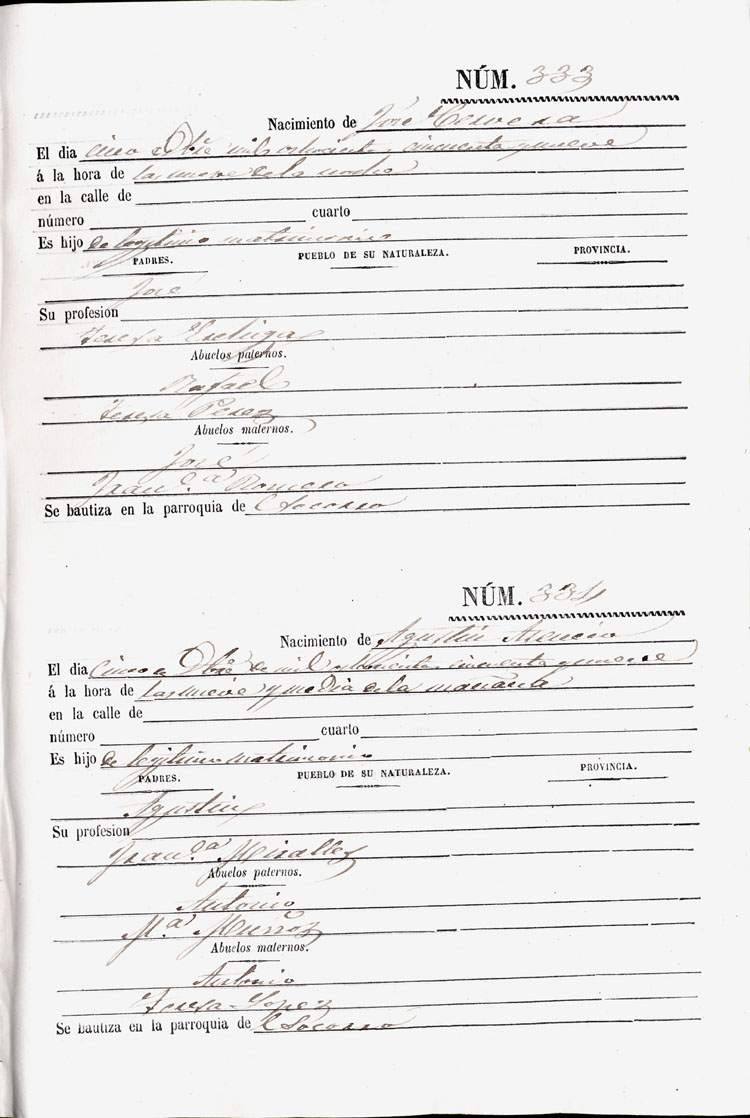 NÚM. 333
Nacimiento de José Cervera
El dia cinco de Dbre mil ochocientos cincuenta y nueve
á la hora de las nueve de la noche
en la calle de
número cuarto
Es hijo de legitimo matrimonio
PADRES. PUEBLO DE SU NATURALEZA. PROVINCIA.
José
Su profesion
Teresa
Abuelos paternos.
Rafael
Teresa Perez
Abuelos maternos.
José
Fran.ca Romero
Se bautiza en la parroquia de el Socorro
NÚM. 334
Nacimiento de Agustin Asencio
El dia cinco de Dbre de mil ochocientos cincuenta y nueve
á la hora de las nueve y media de la mañana
en la calle de
número cuarto
Es hijo de legitimo matrimonio
PADRES. PUEBLO DE SU NATURALEZA. PROVINCIA.
Agustin
Su profesion
Fran.ca Miralles
Abuelos paternos.
Antonio
M.a Muñoz
Abuelos maternos.
Antonio
Teresa Lopez
Se bautiza en la parroquia de el Socorro